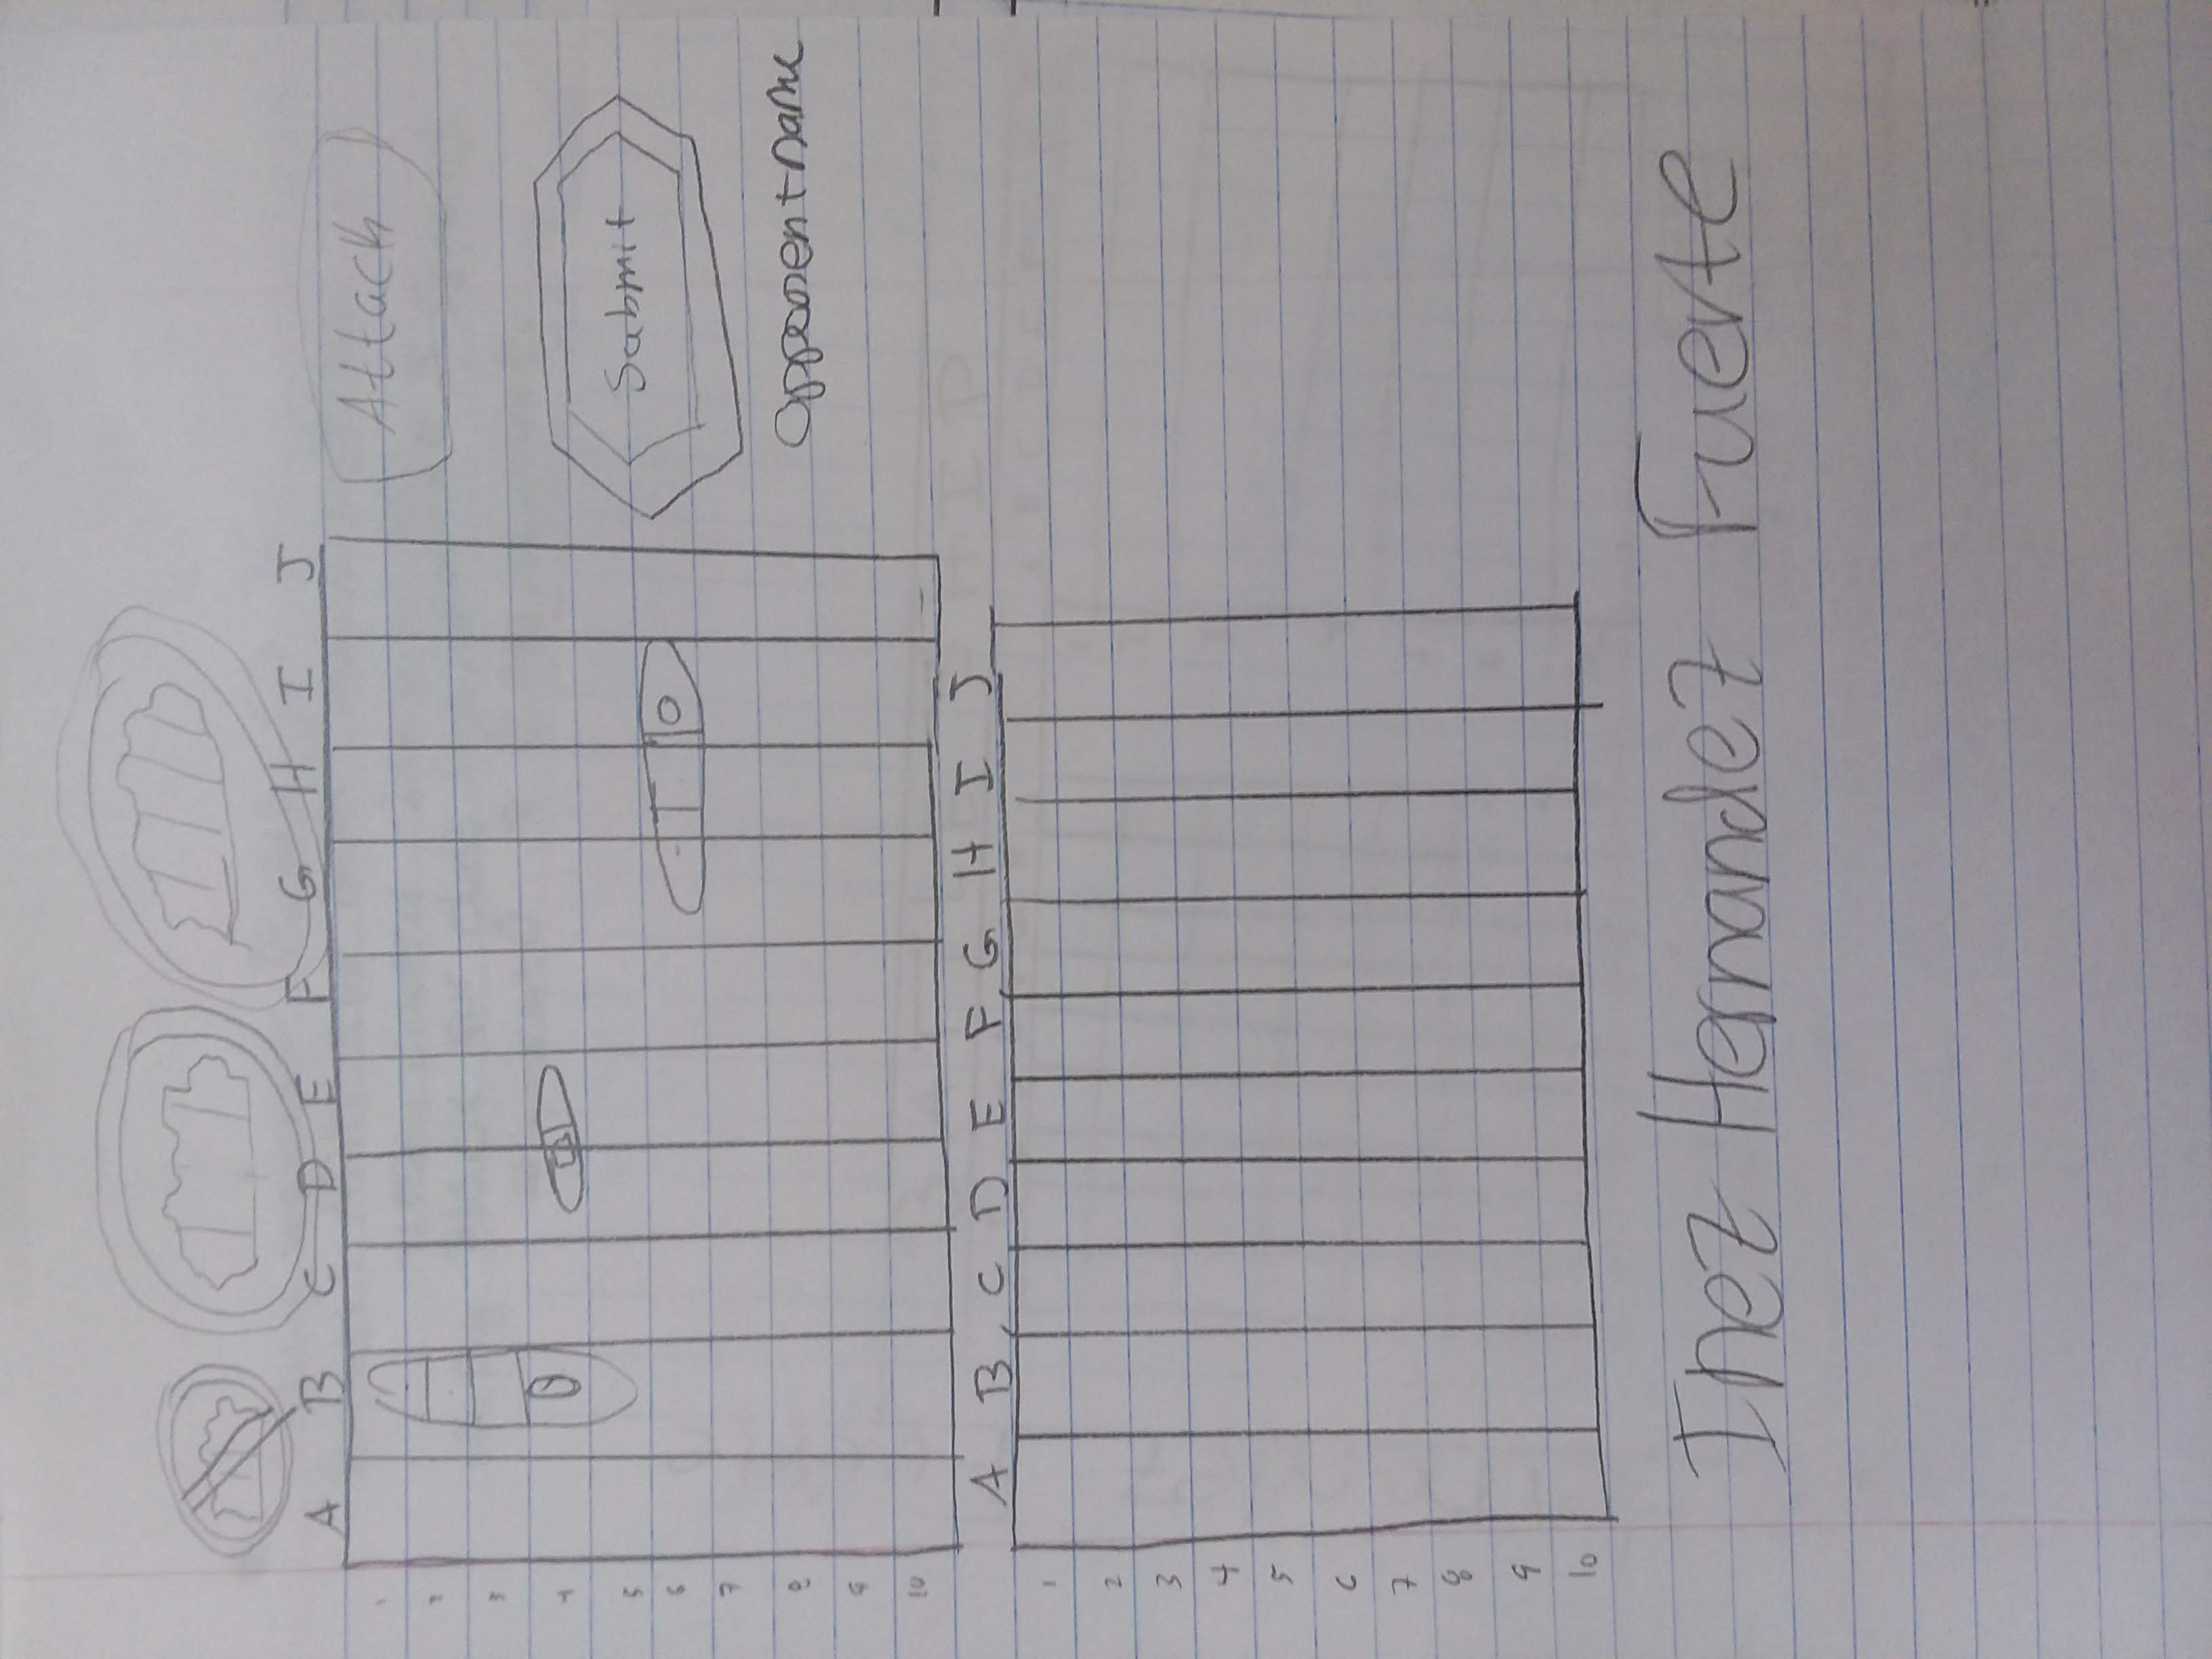 A B C D E F G H I J
Attack
1
2
3
4
5
6
7
8
9
10
Submit
Opponent name
A B C D E F G H I J
1
2
3
4
5
6
7
8
9
10
Inez Hernandez Fuerte